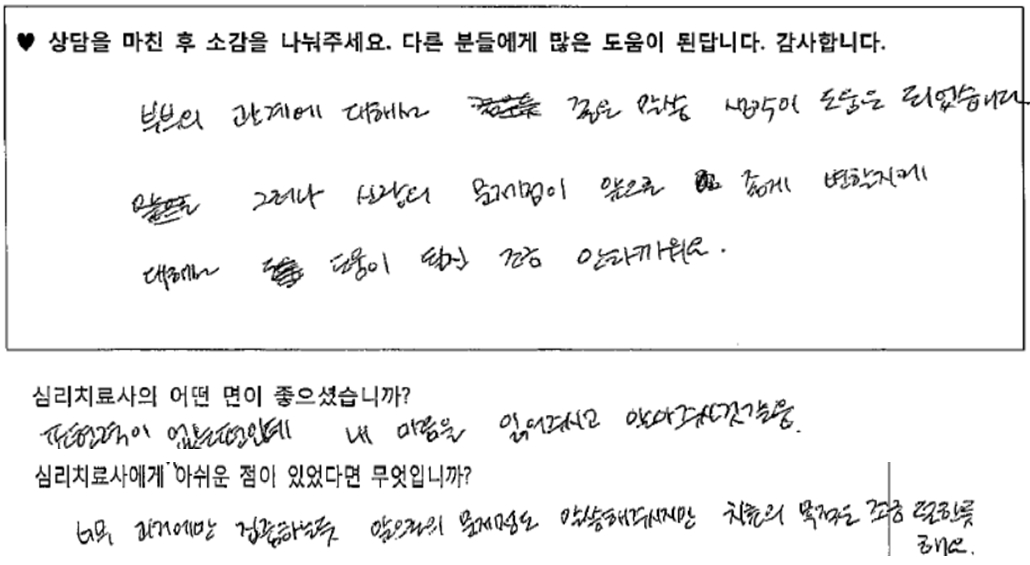 ♥ 상담을 마친 후 소감을 나눠주세요. 다른 분들에게 많은 도움이 된답니다. 감사합니다.
부부의 관계에 대해서 깊은 생각이 도움은 되었습니다
그러나 신랑의 문제점이 앞으로 좋게 변할지에
대해서 도움이 조금 안타까워요.
심리치료사의 어떤 면이 좋으셨습니까?
표현력이 없는편인데 내 마음을 읽어주시고
심리치료사에게 아쉬운 점이 있었다면 무엇입니까?
너무 과거에만 집중하는듯 앞으로의 문제점도 치료의 목적은 조금
해요.